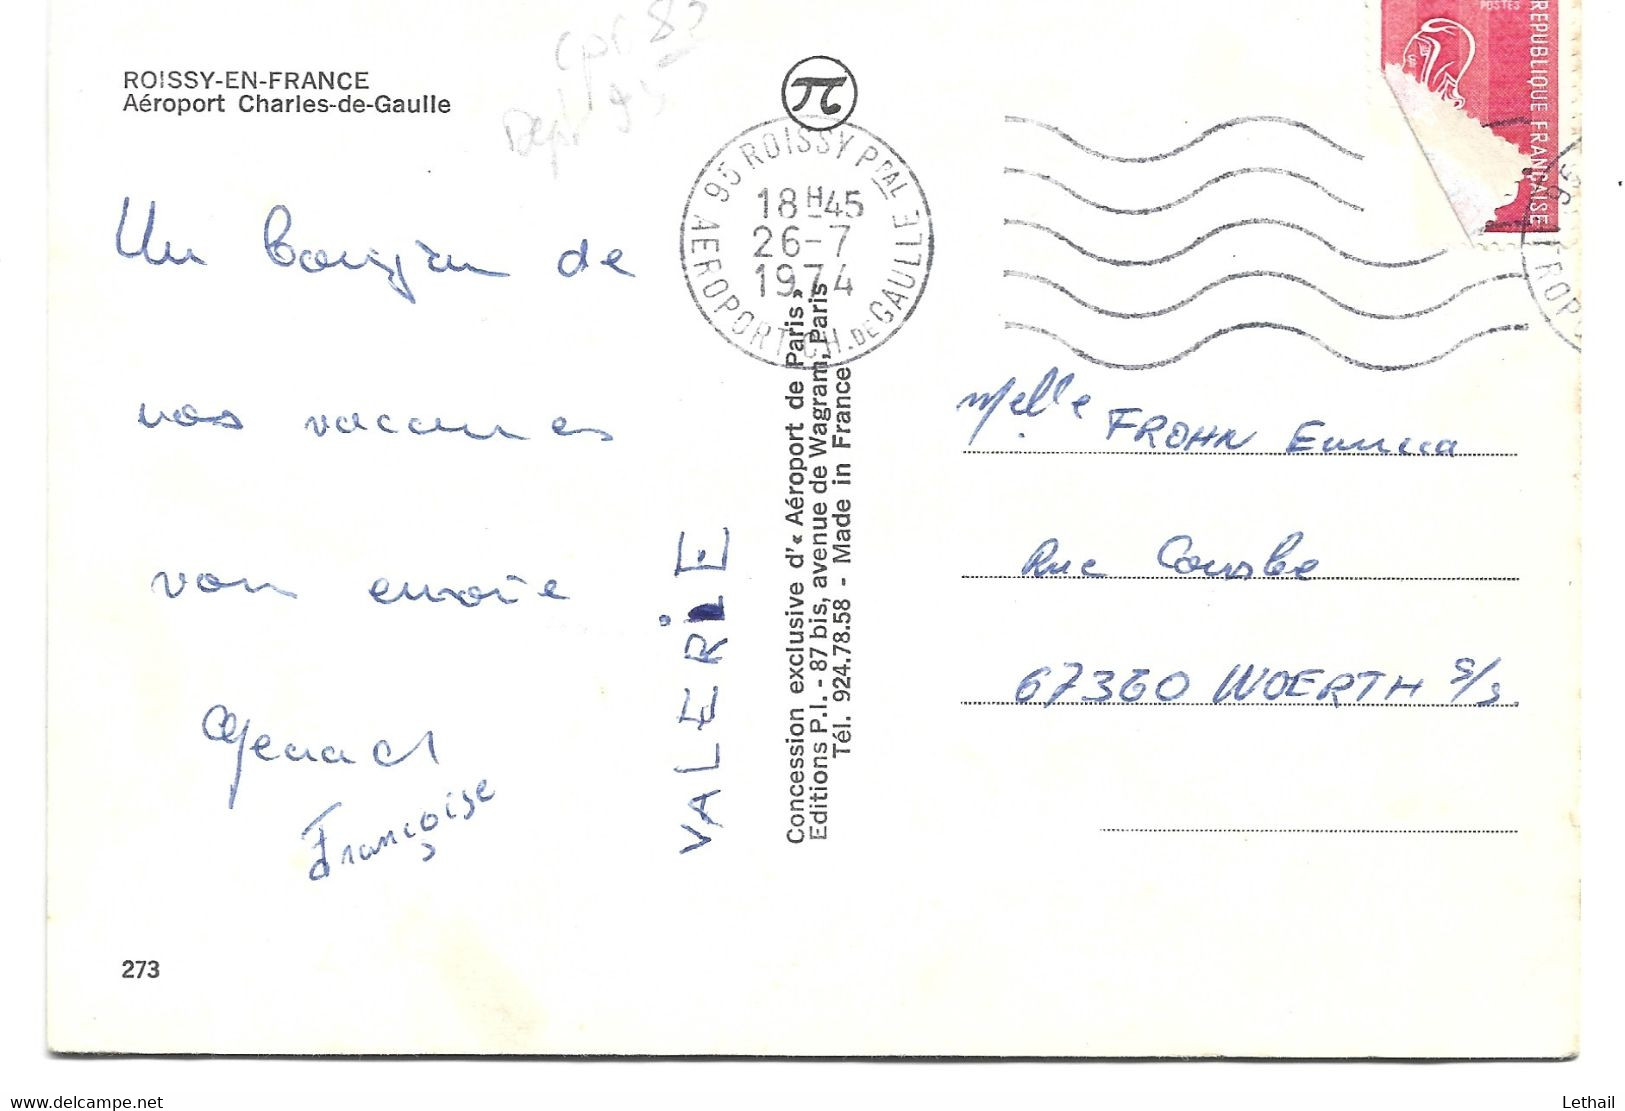 ROISSY-EN-FRANCE
Aéroport Charles-de-Gaulle
Dept 95
π
95 ROISSY Pᵖᴬᴸ
AEROPORT CH. DE GAULLE
18H45
26-7
1974
POSTES
REPUBLIQUE FRANÇAISE
Un bonjour de
nos vacances
vous envoie
Françoise
VALERIE
Concession exclusive d'« Aéroport de Paris »
Editions P.I. - 87 bis, avenue de Wagram, Paris
Tél. 924.78.58 - Made in France
Melle FROHN Emma
Rue
67360 WOERTH s/s.
273
www.delcampe.net
Lethail